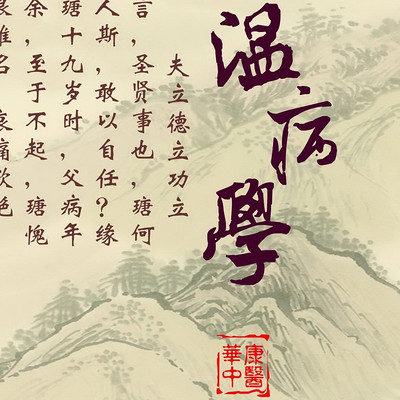 温病學
夫立德立功立
言,圣贤事也,瑭何
人斯,敢以自任?缘
瑭十九岁时,父病年
余,至于不起,瑭愧
名 哀痛欲绝
康醫
華中